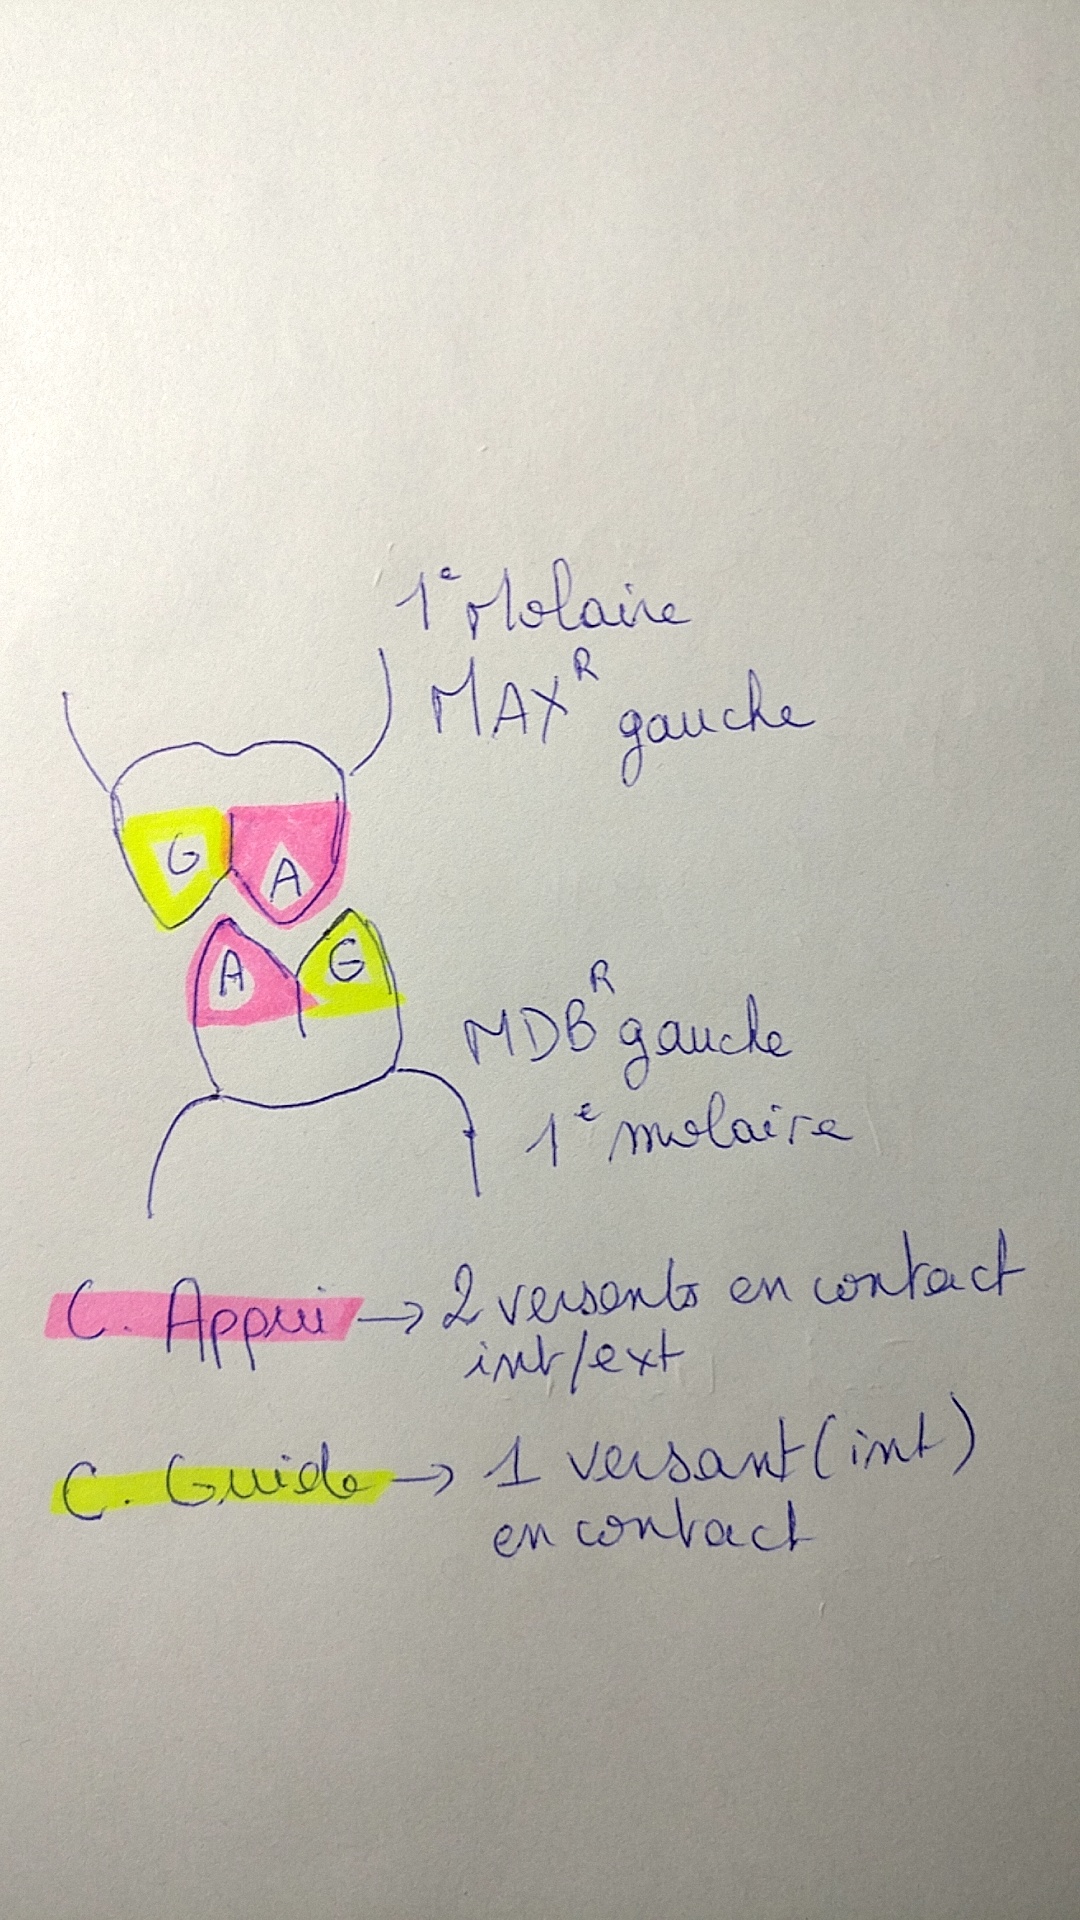 1e Molaire
MAXR gauche
G A
A G
MDBR gauche
1e molaire
C. Appui → 2 versants en contact
int/ext
C. Guide → 1 versant (int)
en contact